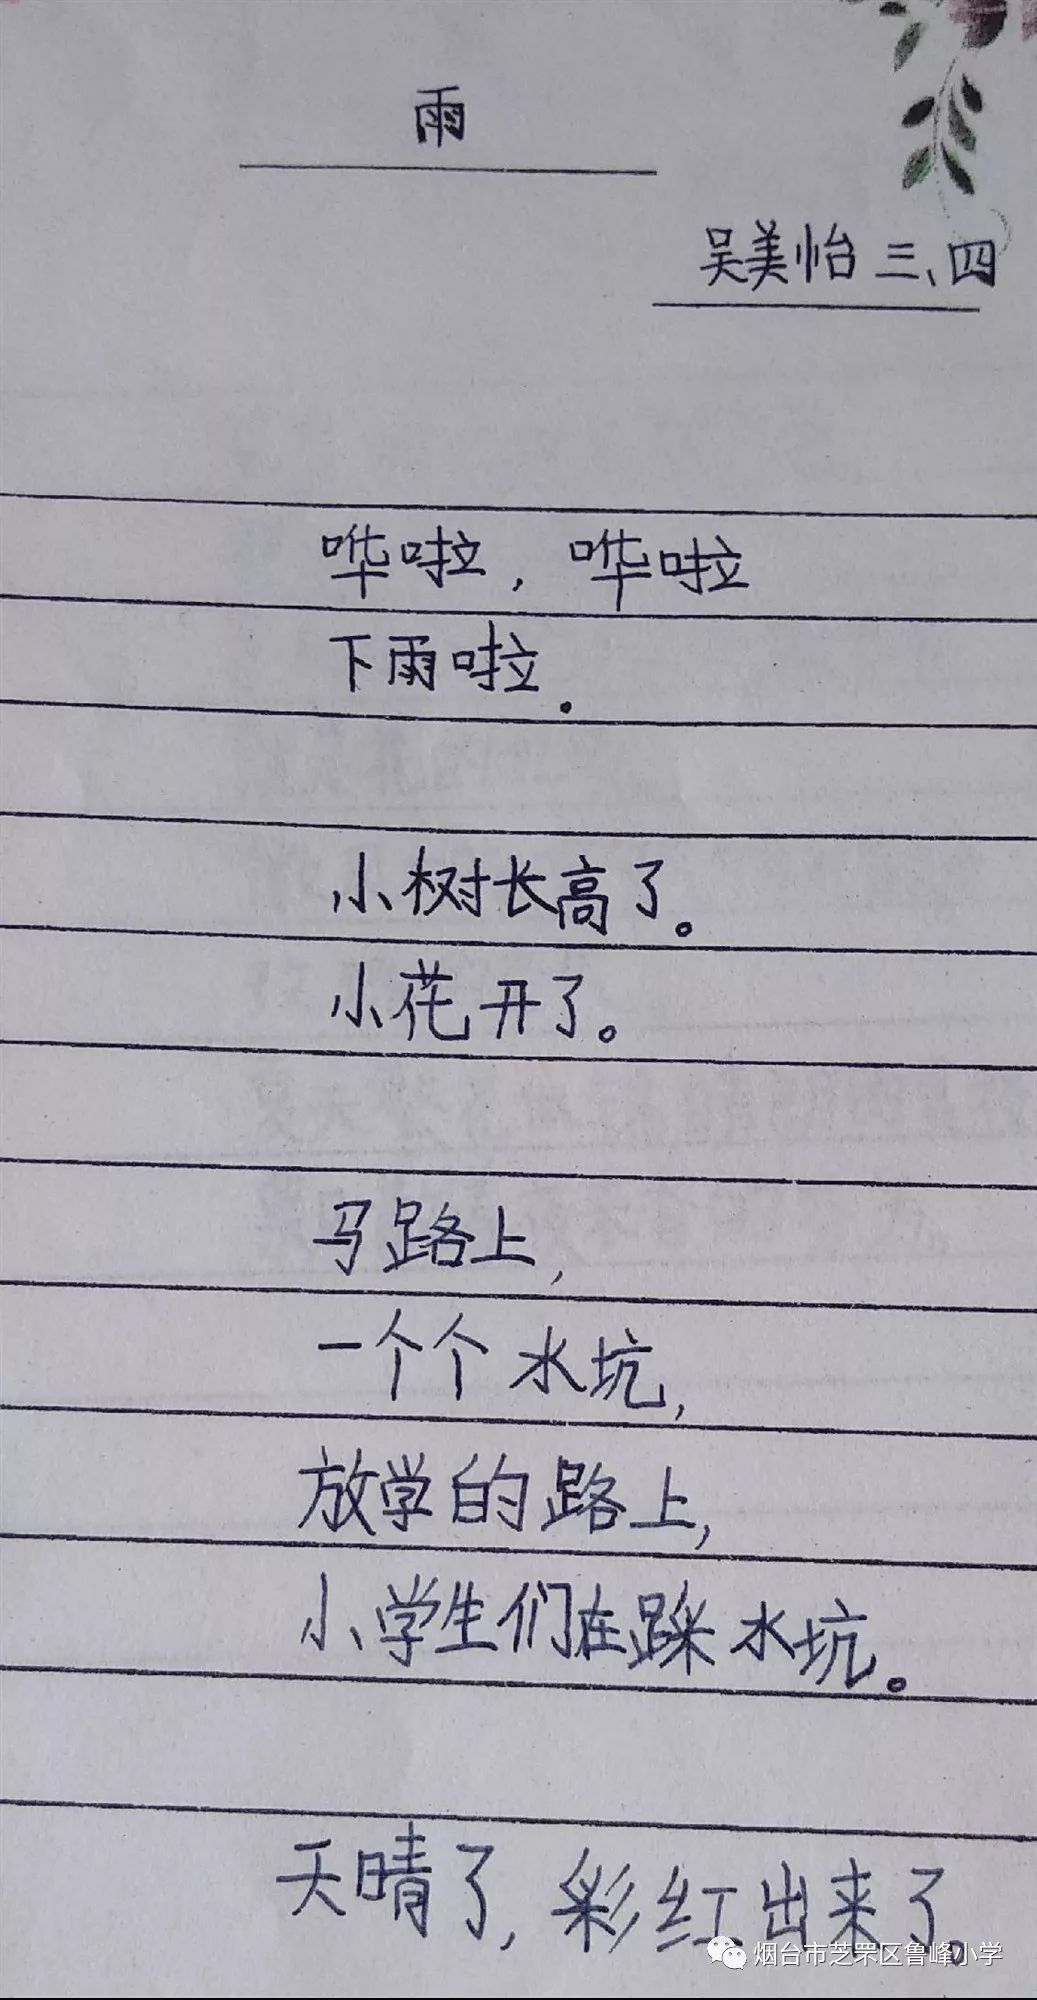 雨
吴美怡 三、四
哗啦，哗啦
下雨啦。
小树长高了。
小花开了。
马路上，
一个个水坑，
放学的路上，
小学生们在踩水坑。
天晴了，彩红出来了。
烟台市芝罘区鲁峰小学